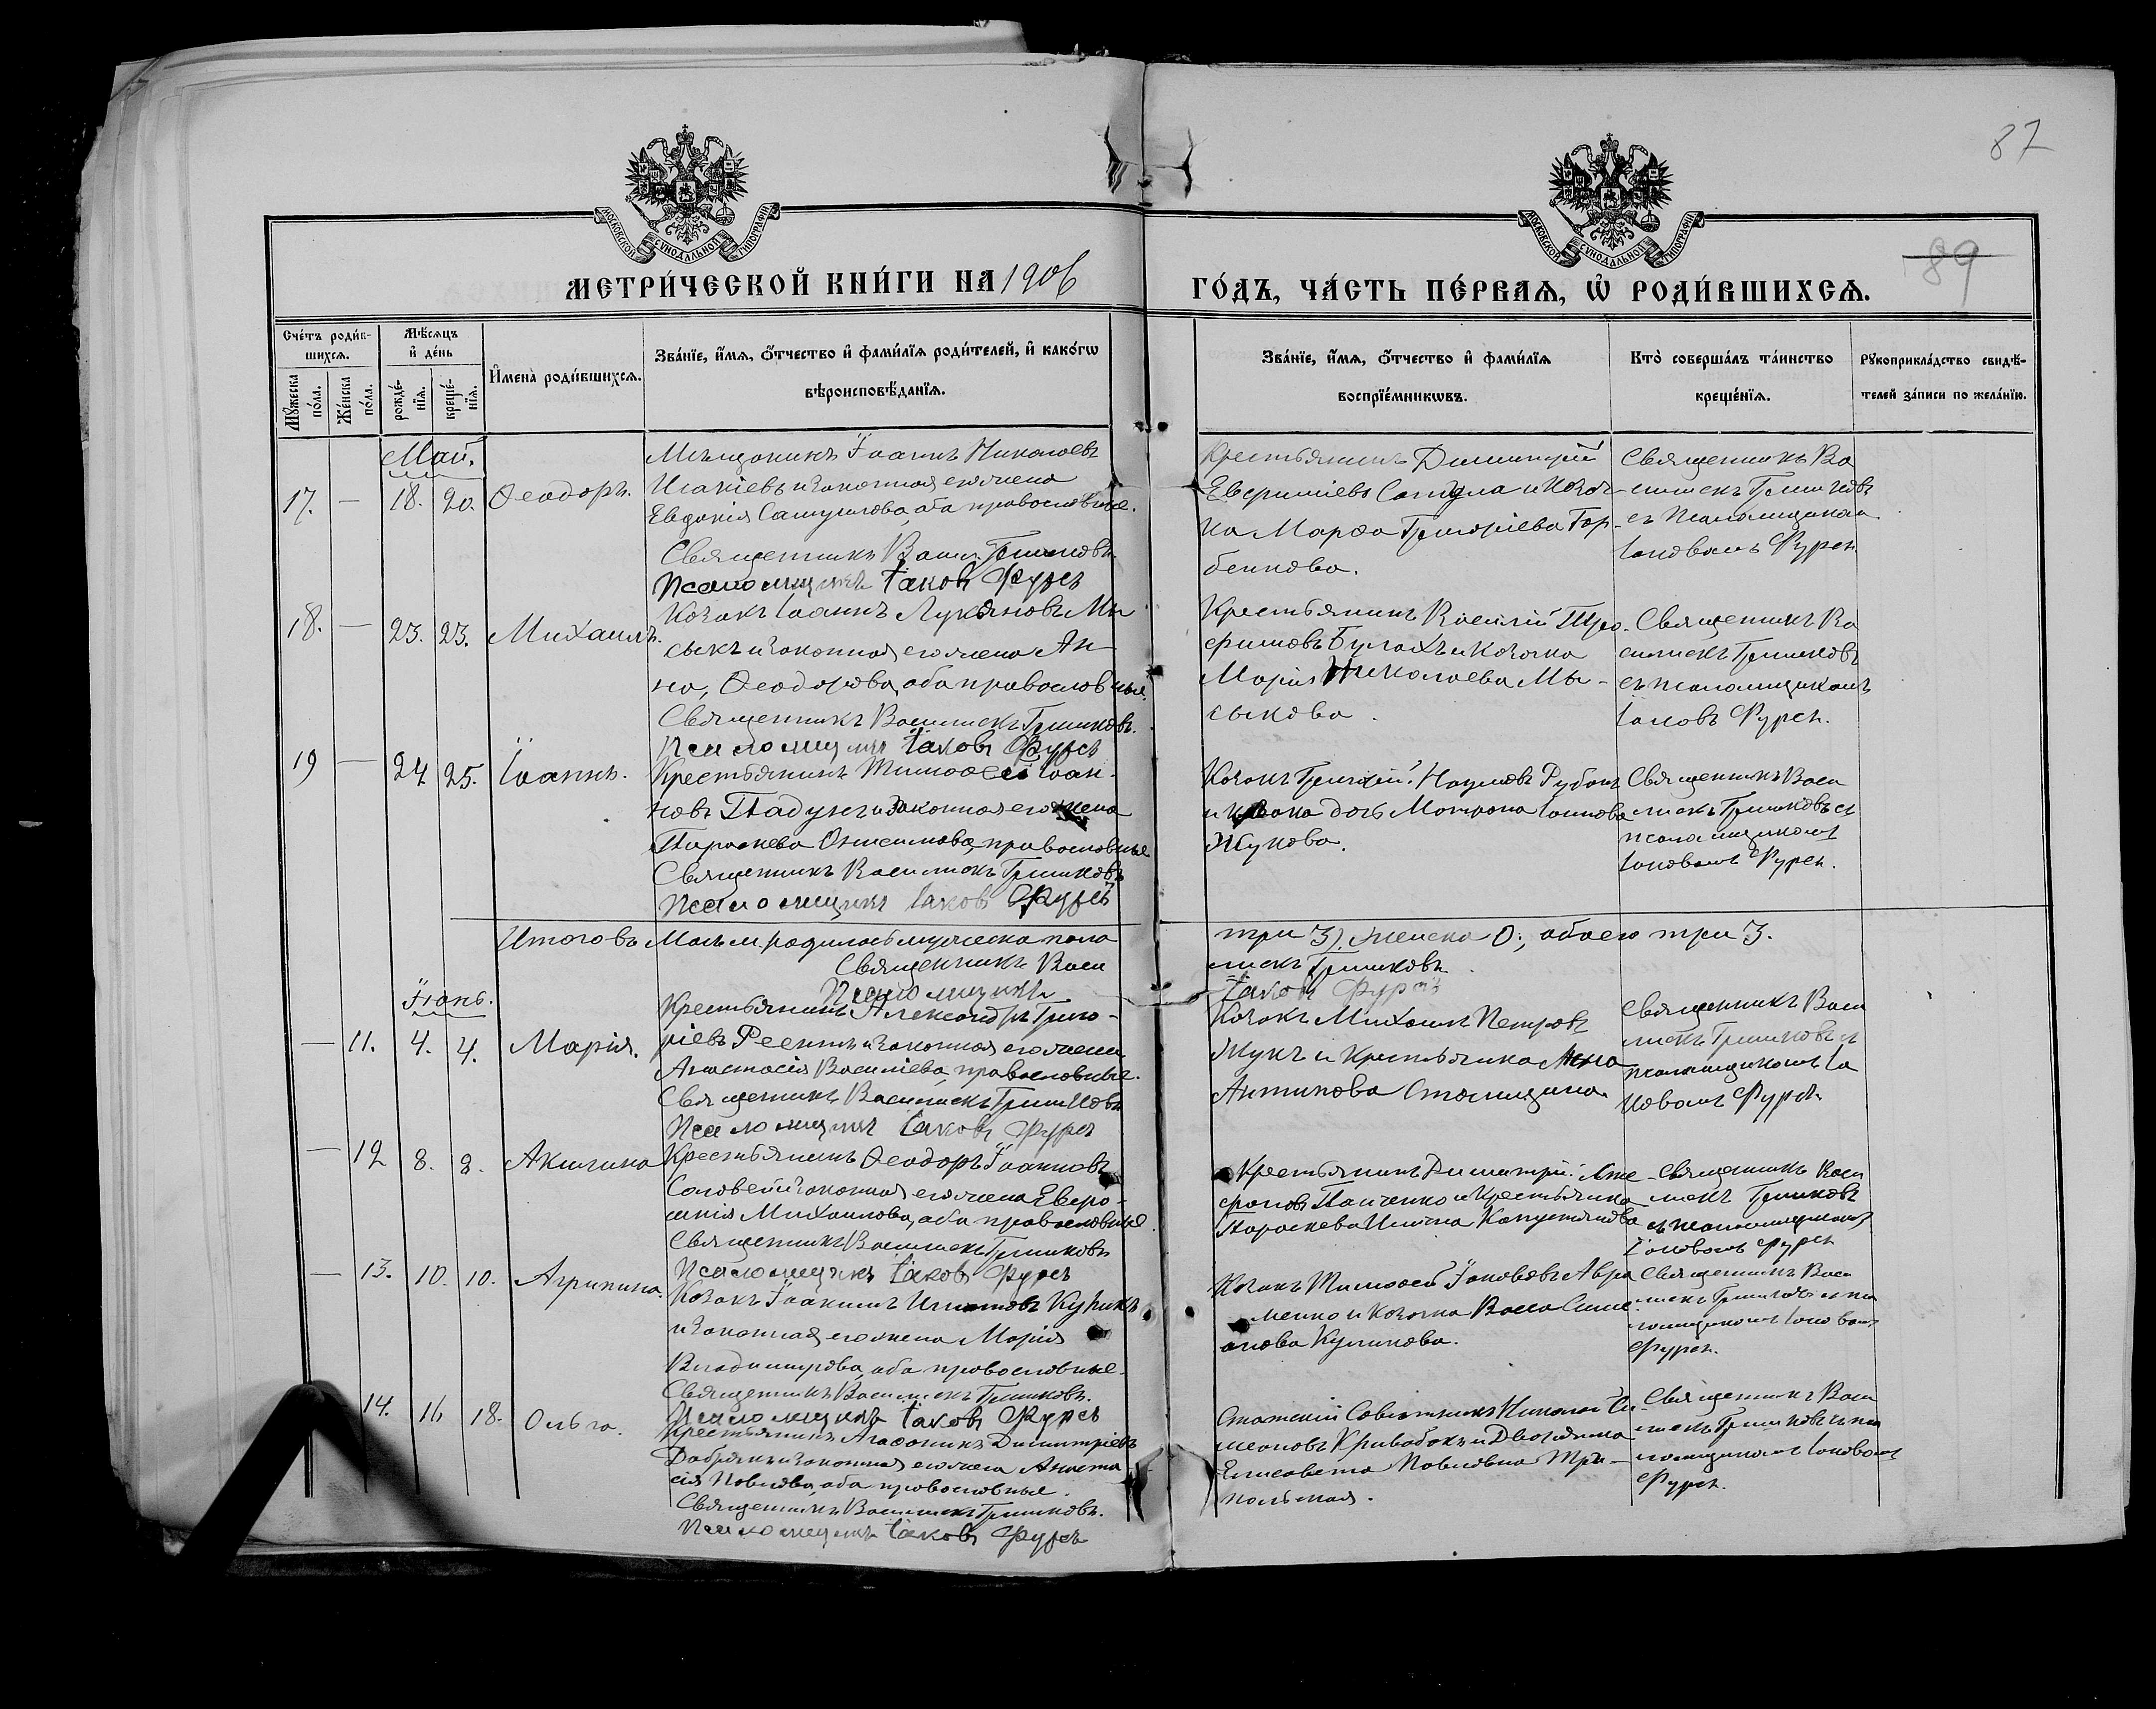 87
89
МОСКОВСКОЙ СѴНОДАЛЬНОЙ ТИПОГРАФІИ
МОСКОВСКОЙ СѴНОДАЛЬНОЙ ТИПОГРАФІИ
МЕТРИ́ЧЕСКОЙ КНИ́ГИ НА 1906
ГО́ДЪ, ЧА́СТЬ ПЕ́РВАѦ, Ѡ҆ РОДИ́ВШИХСѦ.
Сче́тъ роди́в-
шихсѧ.
Мѹ́жеска
по́ла.
Же́нска
по́ла.
Мѣ́сѧцъ
и҆ де́нь
рожде́-
нїѧ.
креще́-
нїѧ.
И҆мена̀ роди́вшихсѧ.
Зва́нїе, и҆́мѧ, ѻ҆́тчество и҆ фами́лїѧ роди́телей, и҆ како́гѡ
вѣроисповѣ́данїѧ.
Зва́нїе, и҆́мѧ, ѻ҆́тчество и҆ фами́лїѧ
воспрїе́мникѡвъ.
Кто̀ соверша́лъ та́инство
креще́нїѧ.
Рѹкоприкла́дство свидѣ́-
телей за́писи по жела́нїю.
Май.
17. — 18. 20. Ѳеодоръ.
Мѣщанинъ Іоаннъ Николаевъ
Исакіевъ и законная его жена
Евдокія Самуилова, оба православные.
Священникъ Васил. Гришковъ.
Псаломщикъ Іаковъ Фурсъ
Крестьянинъ Димитрій
и козач-
ка Марѳа Григоріева Гор-
бенкова.
Священникъ Ва
силискъ Гришковъ
съ псаломщикомъ
Іаковомъ Фурсъ.
18. — 23. 23. Михаилъ.
Козакъ Іоаннъ Лукьяновъ Мы
сыкъ и законная его жена Ан-
на, Ѳеодорова, оба православные.
Священникъ Василискъ Гришковъ.
Псаломщикъ Іаковъ Фурсъ
Крестьянинъ Василій Тро-
фимовъ Булахъ и козачка
Марія Николаева Мы-
сыкова.
Священникъ Ва
силискъ Гришковъ
съ псаломщикомъ
Іаковъ Фурсъ.
19 — 24 25. Іоаннъ.
Крестьянинъ Тимоѳей Іоан-
новъ Падунъ и законная его жена
Параскева Онисимова, православные
Священникъ Василискъ Гришковъ
Псаломщикъ Іаковъ Фурсъ
Козакъ Григорій Наумовъ Рубанъ
и дочь Матрона
Жукова.
Священникъ Васи
лискъ Гришковъ съ
псаломщикомъ
Іаковомъ Фурсъ.
Итого въ Маѣ м. родилось мужеска пола
три 3), женска 0., обоего три 3.
Священникъ Васи
лискъ Гришковъ.
Псаломщикъ
Іаковъ Фурсъ
Іюнь.
— 11. 4. 4. Марія.
Крестьянинъ Александръ Григо-
ріевъ Реентъ и законная его жена
Анастасія Василіева, православные.
Священникъ Василискъ Гришковъ
Псаломщикъ Іаковъ Фурсъ
Козакъ Михаилъ Петровъ
Жукъ и крестьянка Анна
Антипова
Священникъ Васи
лискъ Гришковъ съ
псаломщикомъ Іа
ковомъ Фурсъ.
— 12 8. 8. Акилина
Крестьянинъ Ѳеодоръ Іоанновъ
Соловей и законная его жена Евфро-
синія Михаилова, оба православные.
Священникъ Василискъ Гришковъ
Псаломщикъ Іаковъ Фурсъ
Крестьянинъ Димитрій
Панченко и крестьянка
Параскева
Священникъ Васи
лискъ Гришковъ
съ псаломщикомъ
Іаковомъ Фурсъ
— 13. 10. 10. Агрипина.
Козакъ Іоакимъ Игнатовъ Куликъ
и законная его жена Марія
Владимирова, оба православные.
Священникъ Василискъ Гришковъ.
Псаломщикъ Іаковъ Фурсъ
Козакъ Тимоѳей Іаковлевъ Авра
менко и козачка Васса Симе
онова Куликова.
Священникъ Васи
лискъ Гришковъ съ пса
ломщикомъ Іаковомъ
Фурсъ.
14. 16 18. Ольга.
Крестьянинъ Агаѳоникъ Димитріевъ
Добрякъ и законная его жена Анаста
сія Павлова, оба православные.
Священникъ Василискъ Гришковъ.
Псаломщикъ Іаковъ Фурсъ
Статскій Совѣтникъ Николай Си
меоновъ Кривобокъ и Дворянка
Елисавета Павловна Три-
польская.
Священникъ Васи
лискъ Гришковъ съ пса
ломщикомъ Іаковомъ
Фурсъ.